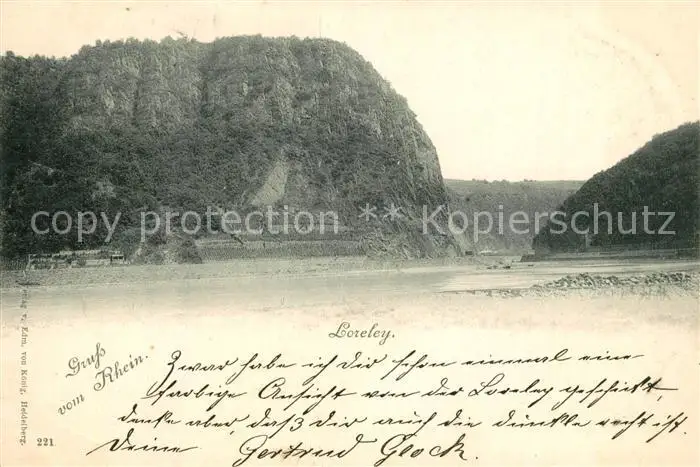 copy protection ** Kopierschutz
Loreley.
Gruß
vom Rhein.
Zwar habe ich Dir schon einmal eine
farbige Ansicht von der Loreley geschickt,
denke aber, daß Dir auch die dunkle recht ist.
Deine Gertrud Glock.
Verlag v. Edm. von König, Heidelberg.
221